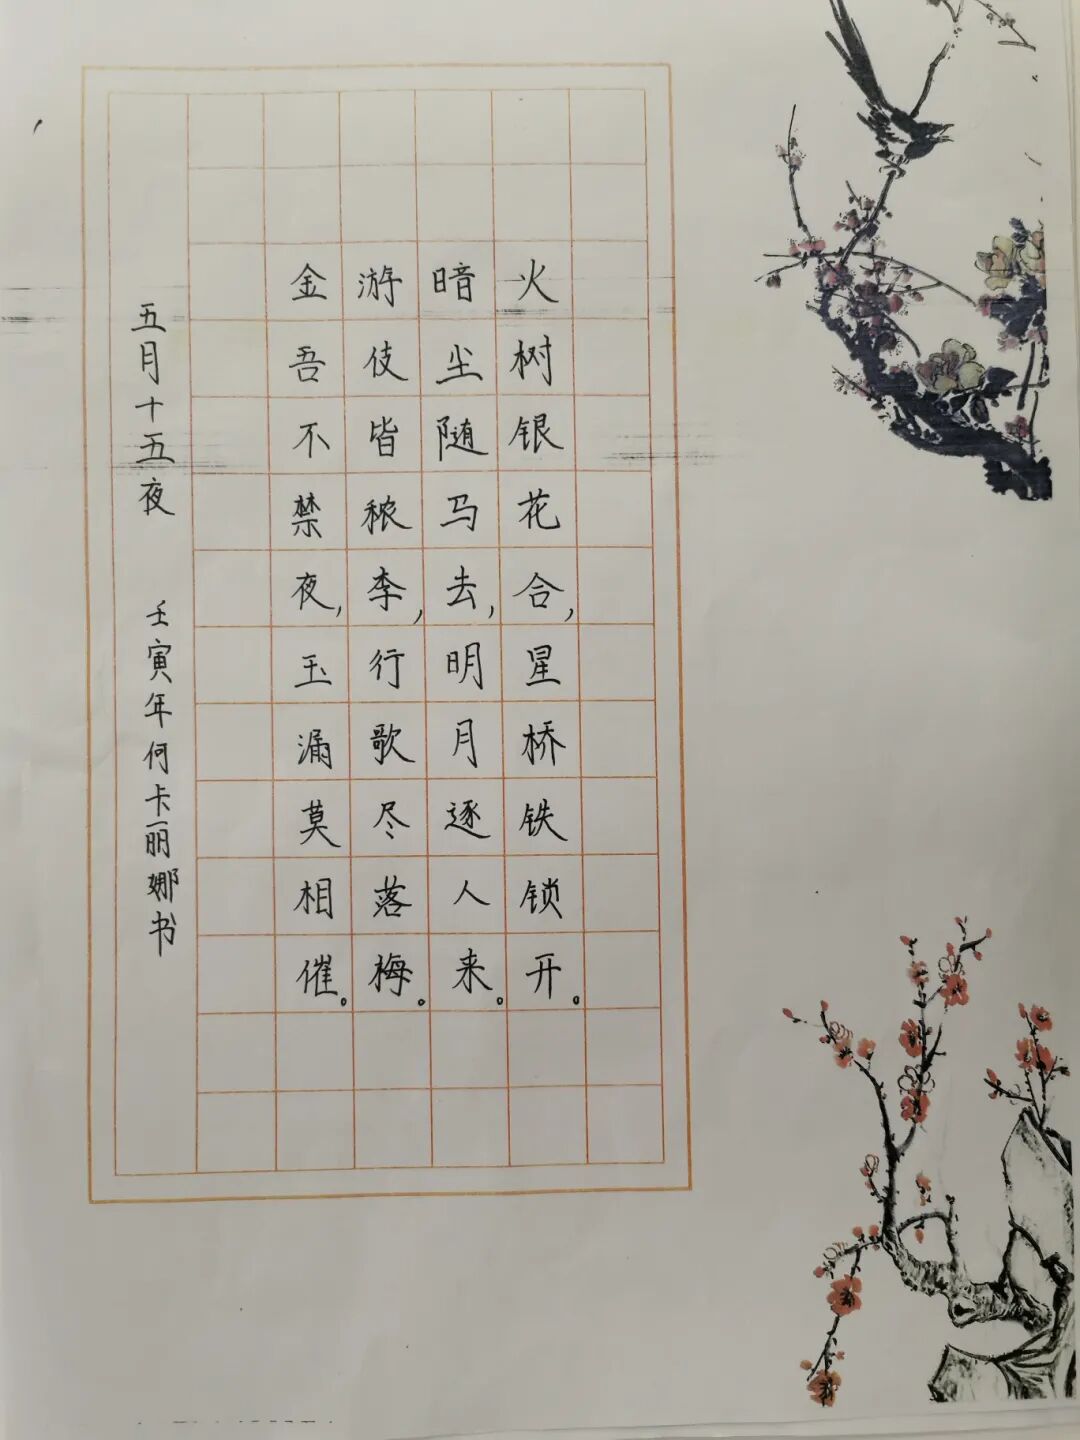 火树银花合,星桥铁锁开。
暗尘随马去,明月逐人来。
游伎皆秾李,行歌尽落梅。
金吾不禁夜,玉漏莫相催。
五月十五夜 壬寅年何卡丽娜书